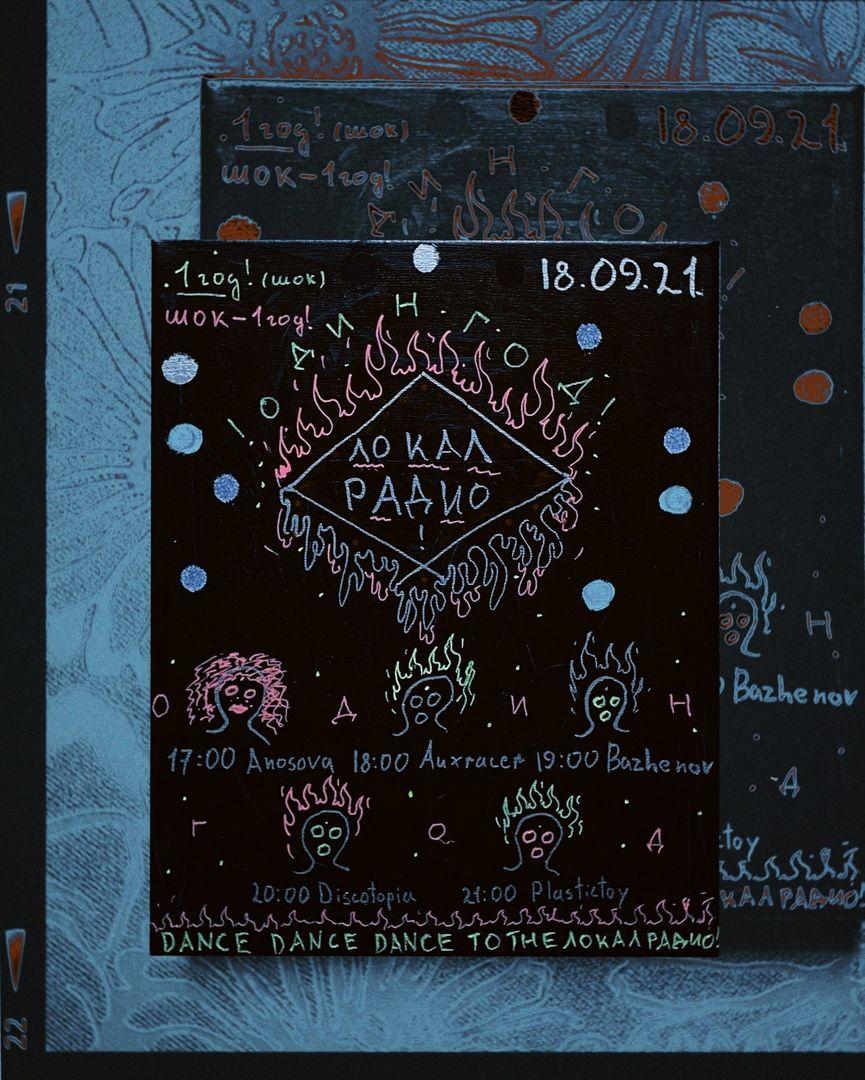 .1 год! (шок)
18.09.21
шок-1год!
! ОДИН ГОД!
ЛОКАЛ
РАДИО
!
О Д И Н
17:00 Anosova 18:00 Auxracer 19:00 Bazhenov
Г О Д
20:00 Discotopia 21:00 Plastictoy
DANCE DANCE DANCE TO THE ЛОКАЛ РАДИО!
.1 год! (шок)
18.09.21
шок-1год!
ДИН ГО
!
Н
Bazhenov
Д
ctoy
КАЛ РАДИО!
21
22